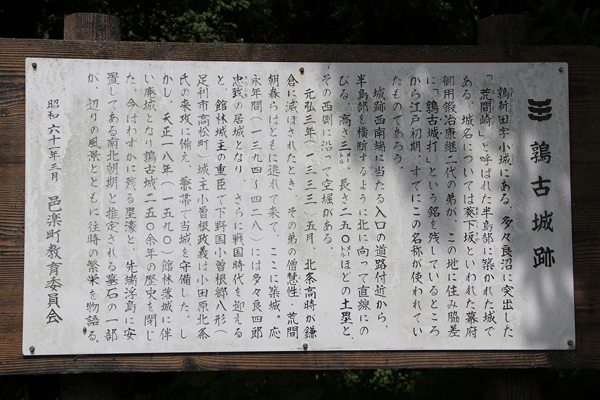 鶉古城跡
鶉新田字小城にある、多々良沼に突出した
「荒間崎」と呼ばれた半島部に築かれた城で
ある。城名については葵下坂といわれた幕府
御用鍛冶康継二代の弟が、この地に住み脇差
に「鶉古城打」という銘を残しているところ
から江戸初期、すでにこの名称が使われてい
たものであろう。
城跡西南端に当たる入口の道路付近から、
半島部を横断するように北に向って直線にの
びる、高さ三㍍、長さ二五〇㍍ほどの土塁と、
その西側に沿って空堀がある。
元弘三年(一三三三)五月、北条高時が鎌
倉に滅ぼされたとき、その弟の僧慧性、荒間
朝春らはともに逃れて来て、ここに築城。応
永年間(一三九四〜四二八)には多々良四郎
忠致の居城となり、さらに戦国時代を迎える
と、館林城主の重臣で下野国小曽根郷八形(
足利市高松町)城主小曽根政義は小田原北条
氏の来攻に備え、要害で当城を守備した。し
かし、天正一八年(一五九〇)館林落城に伴
い廃城となり鶉古城二五〇余年の歴史を閉じ
た。今はわずかに残る塁濠と、先端浮島に安
置してある南北朝期と推定される墓石の一部
が、辺りの風景とともに往時の繁栄を物語る。
昭和六十一年三月 邑楽町教育委員会